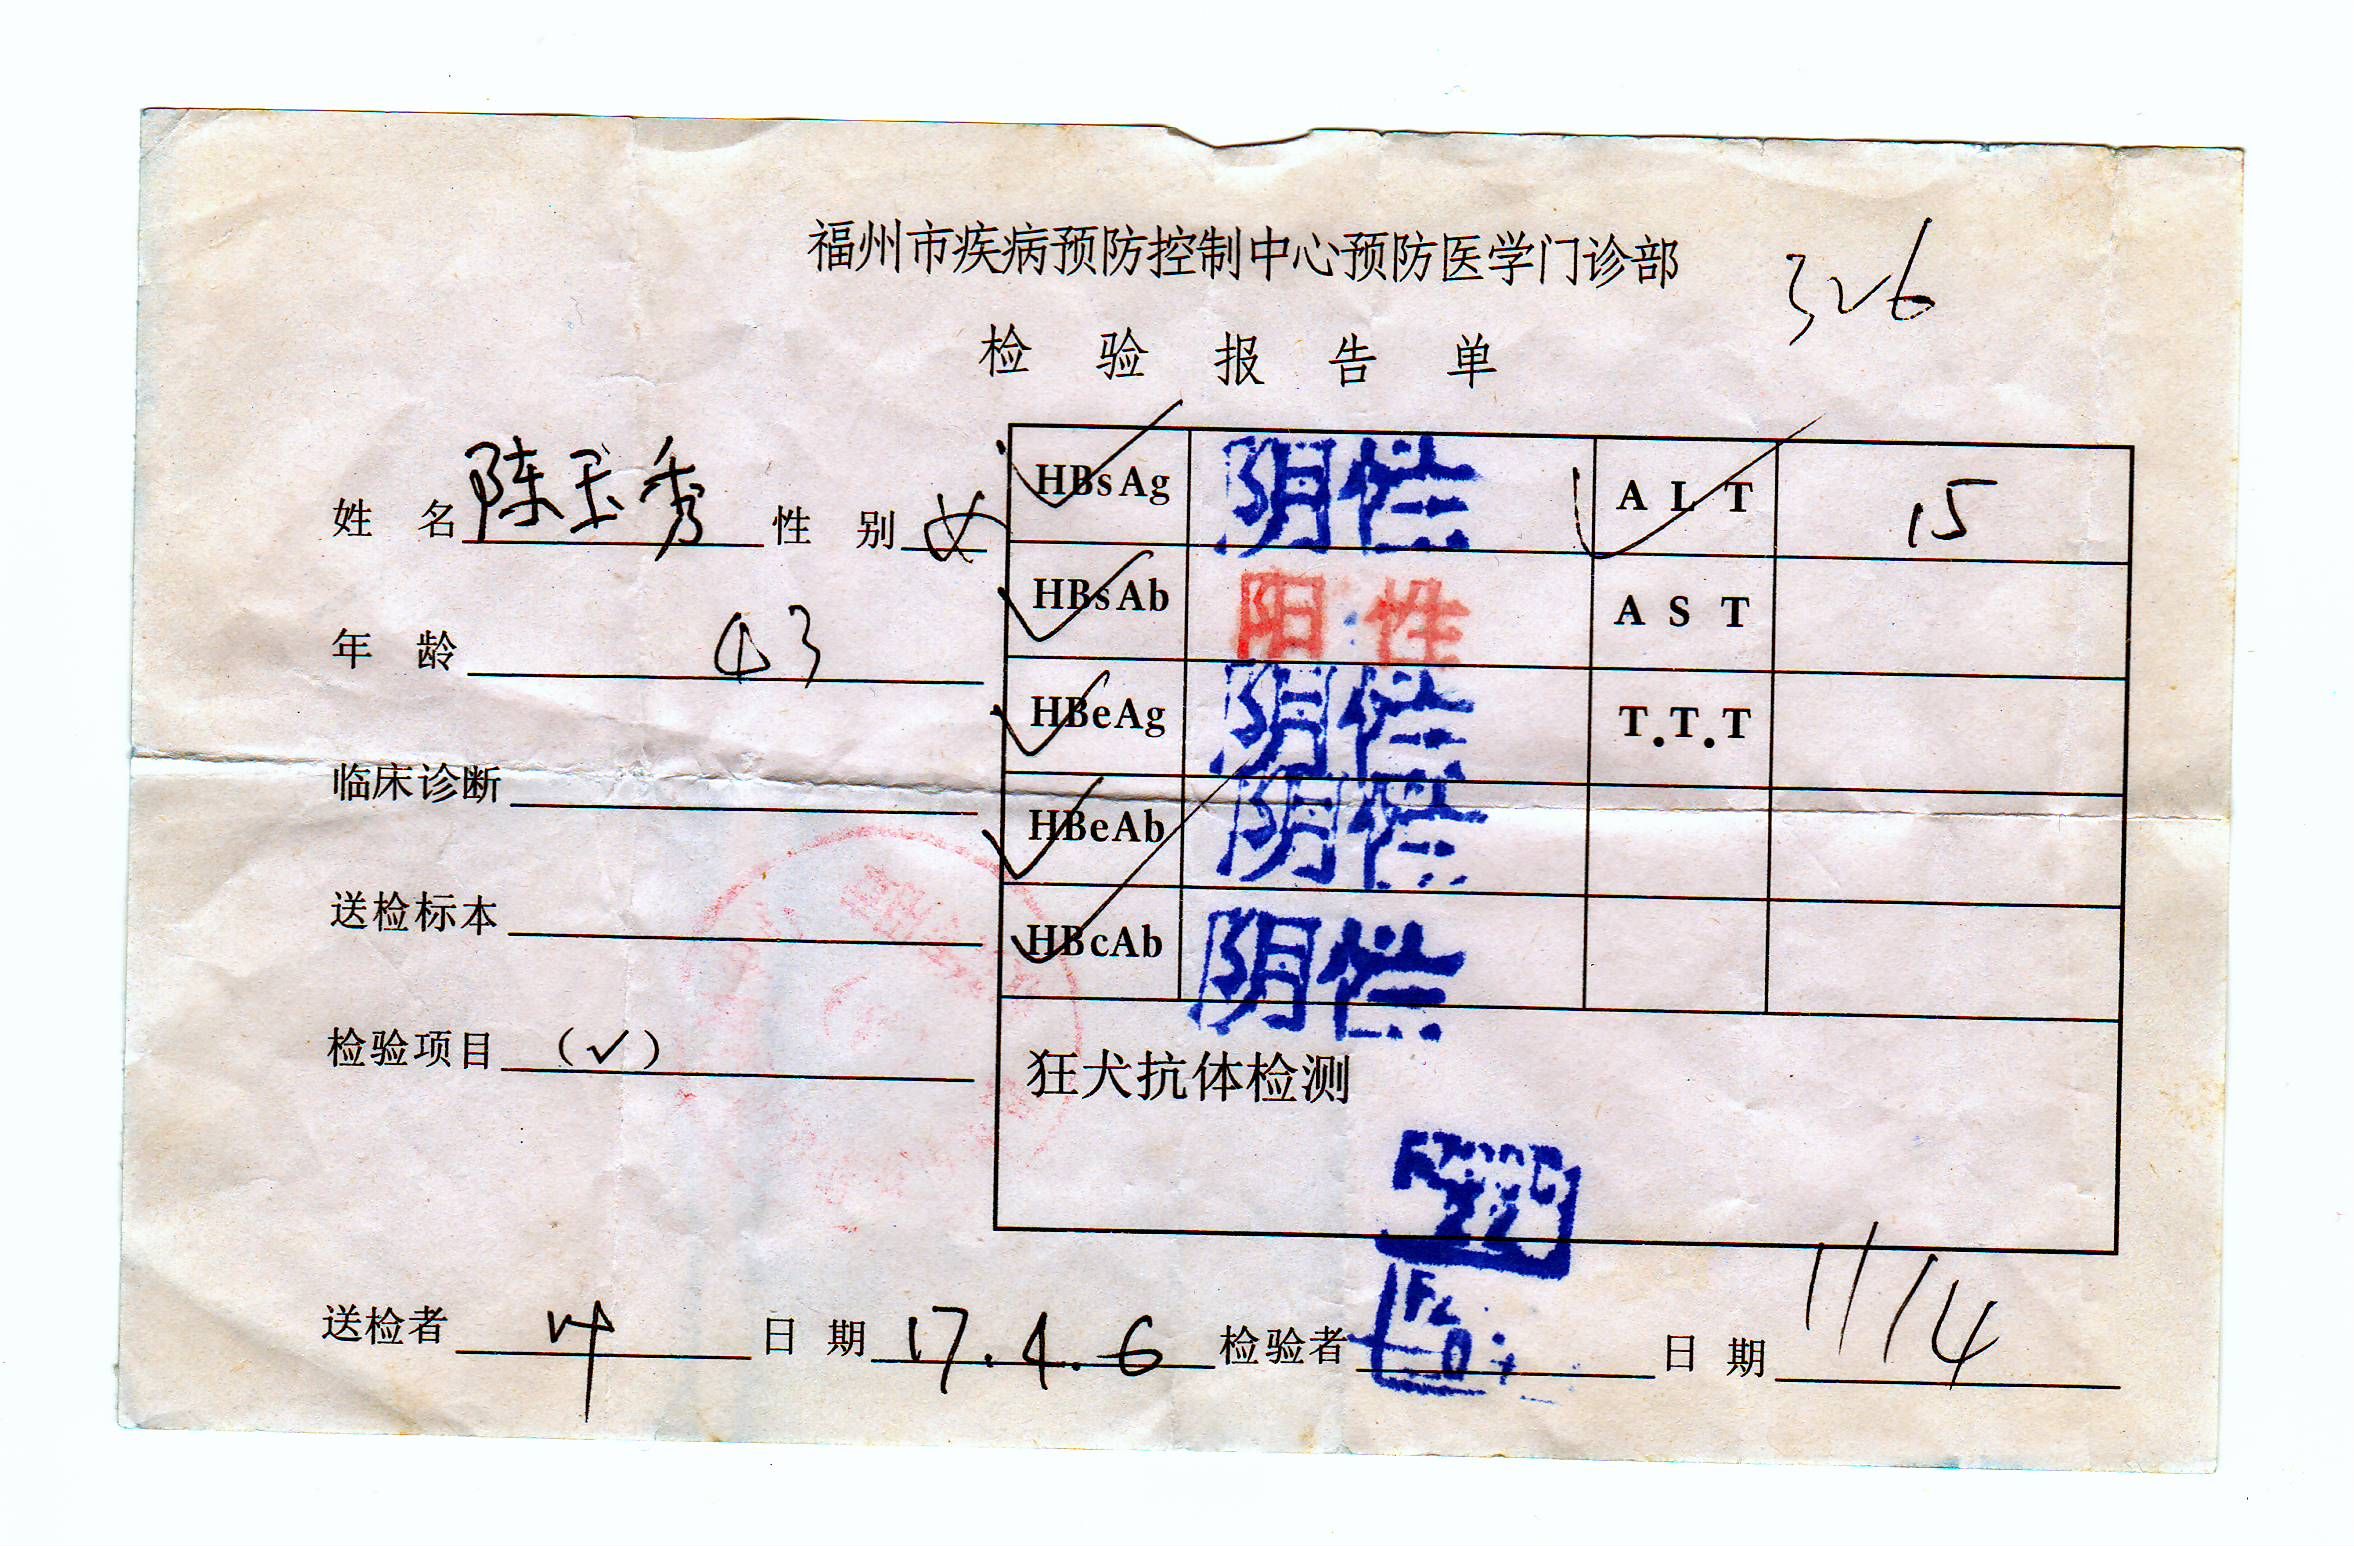 福州市疾病预防控制中心预防医学门诊部
326
检验报告单
姓名 陈玉秀 性别 女
年龄 43
临床诊断
送检标本
检验项目 (√)
HBsAg 阴性 ALT 15
HBsAb 阳性 AST
HBeAg 阴性 T.T.T
HBeAb 阴性
HBcAb 阴性
狂犬抗体检测
22
送检者 日期 17.4.6 检验者 日期 11/4